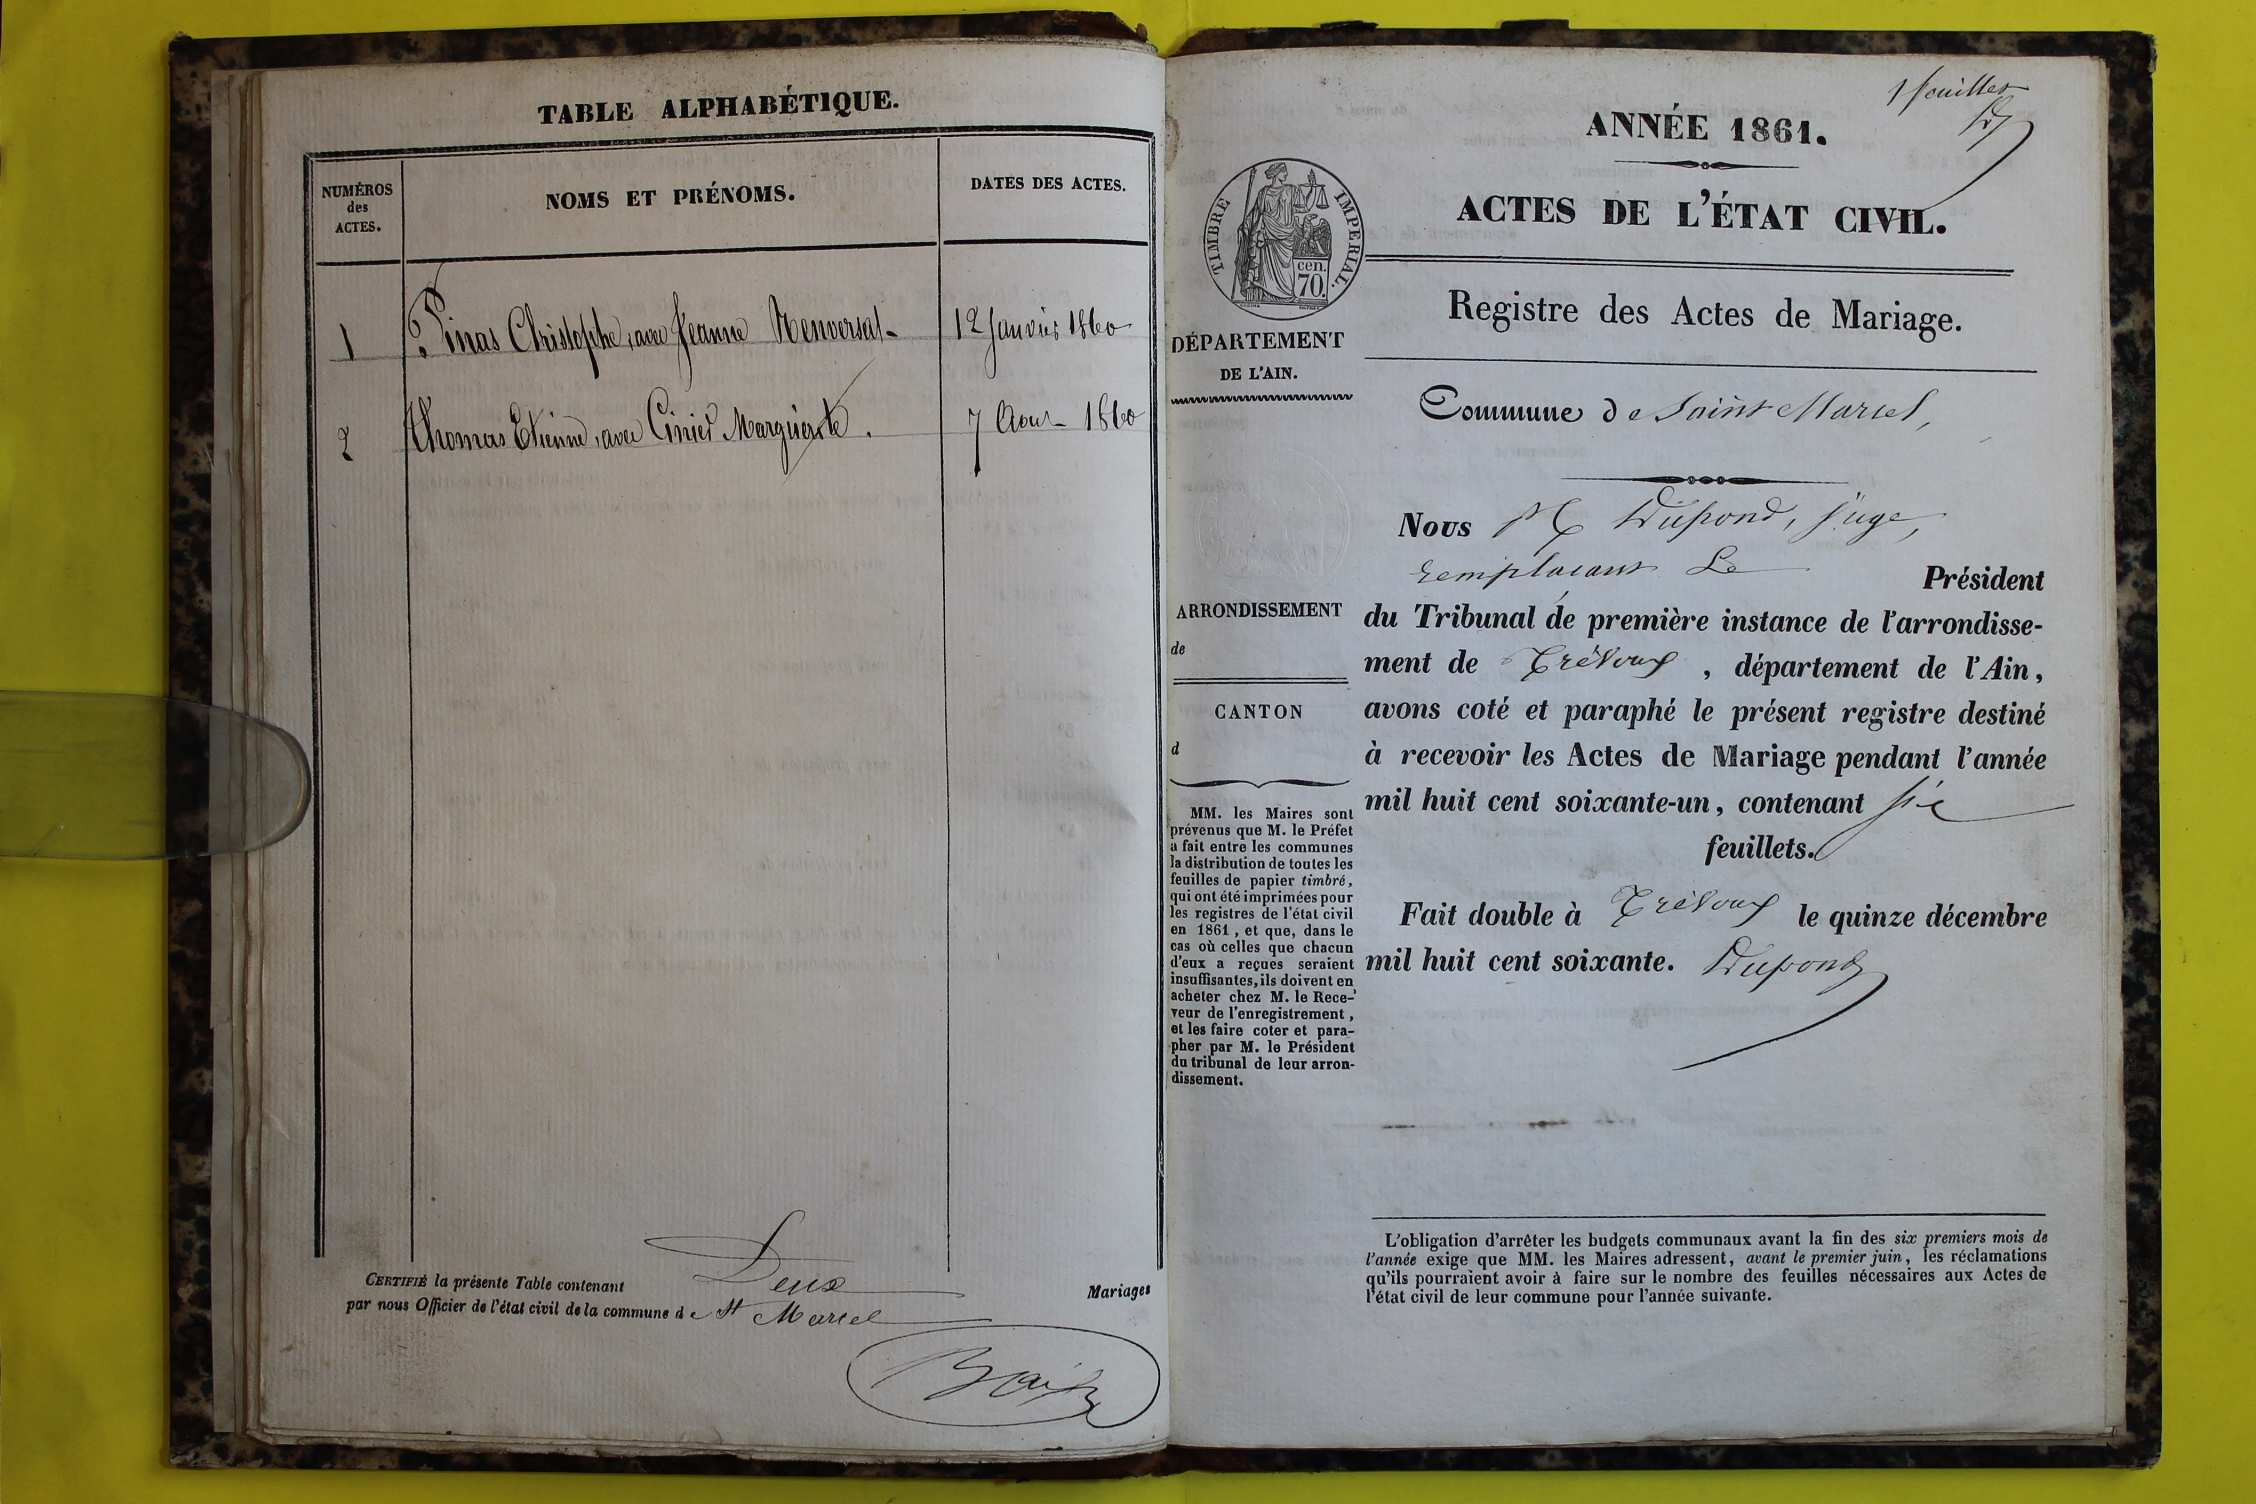 TABLE ALPHABÉTIQUE.
NUMÉROS
des
ACTES.
NOMS ET PRÉNOMS.
DATES DES ACTES.
1 Pinas Christophe, avec Jeanne Renversat 12 Janvier 1860
2 Thomas Etienne, avec Cinier Marguerite. 7 Aout 1860
CERTIFIÉ la présente Table contenant Deux Mariages
par nous Officier de l'état civil de la commune de St Marcel
1 feuillet
ANNÉE 1861.
ACTES DE L'ÉTAT CIVIL.
TIMBRE IMPERIAL.
cen.
70.
DÉPARTEMENT
DE L'AIN.
ARRONDISSEMENT
de
CANTON
d
MM. les Maires sont
prévenus que M. le Préfet
a fait entre les communes
la distribution de toutes les
feuilles de papier timbré,
qui ont été imprimées pour
les registres de l'état civil
en 1861, et que, dans le
cas où celles que chacun
d'eux a reçues seraient
insuffisantes, ils doivent en
acheter chez M. le Rece-
veur de l'enregistrement,
et les faire coter et para-
pher par M. le Président
du tribunal de leur arron-
dissement.
Registre des Actes de Mariage.
Commune de Saint Marcel,
Nous Dupond, juge,
remplacant Le Président
du Tribunal de première instance de l'arrondisse-
ment de Trévoux, département de l'Ain,
avons coté et paraphé le présent registre destiné
à recevoir les Actes de Mariage pendant l'année
mil huit cent soixante-un, contenant six
feuillets.
Fait double à Trévoux le quinze décembre
mil huit cent soixante. Dupond
L'obligation d'arrêter les budgets communaux avant la fin des six premiers mois de
l'année exige que MM. les Maires adressent, avant le premier juin, les réclamations
qu'ils pourraient avoir à faire sur le nombre des feuilles nécessaires aux Actes de
l'état civil de leur commune pour l'année suivante.